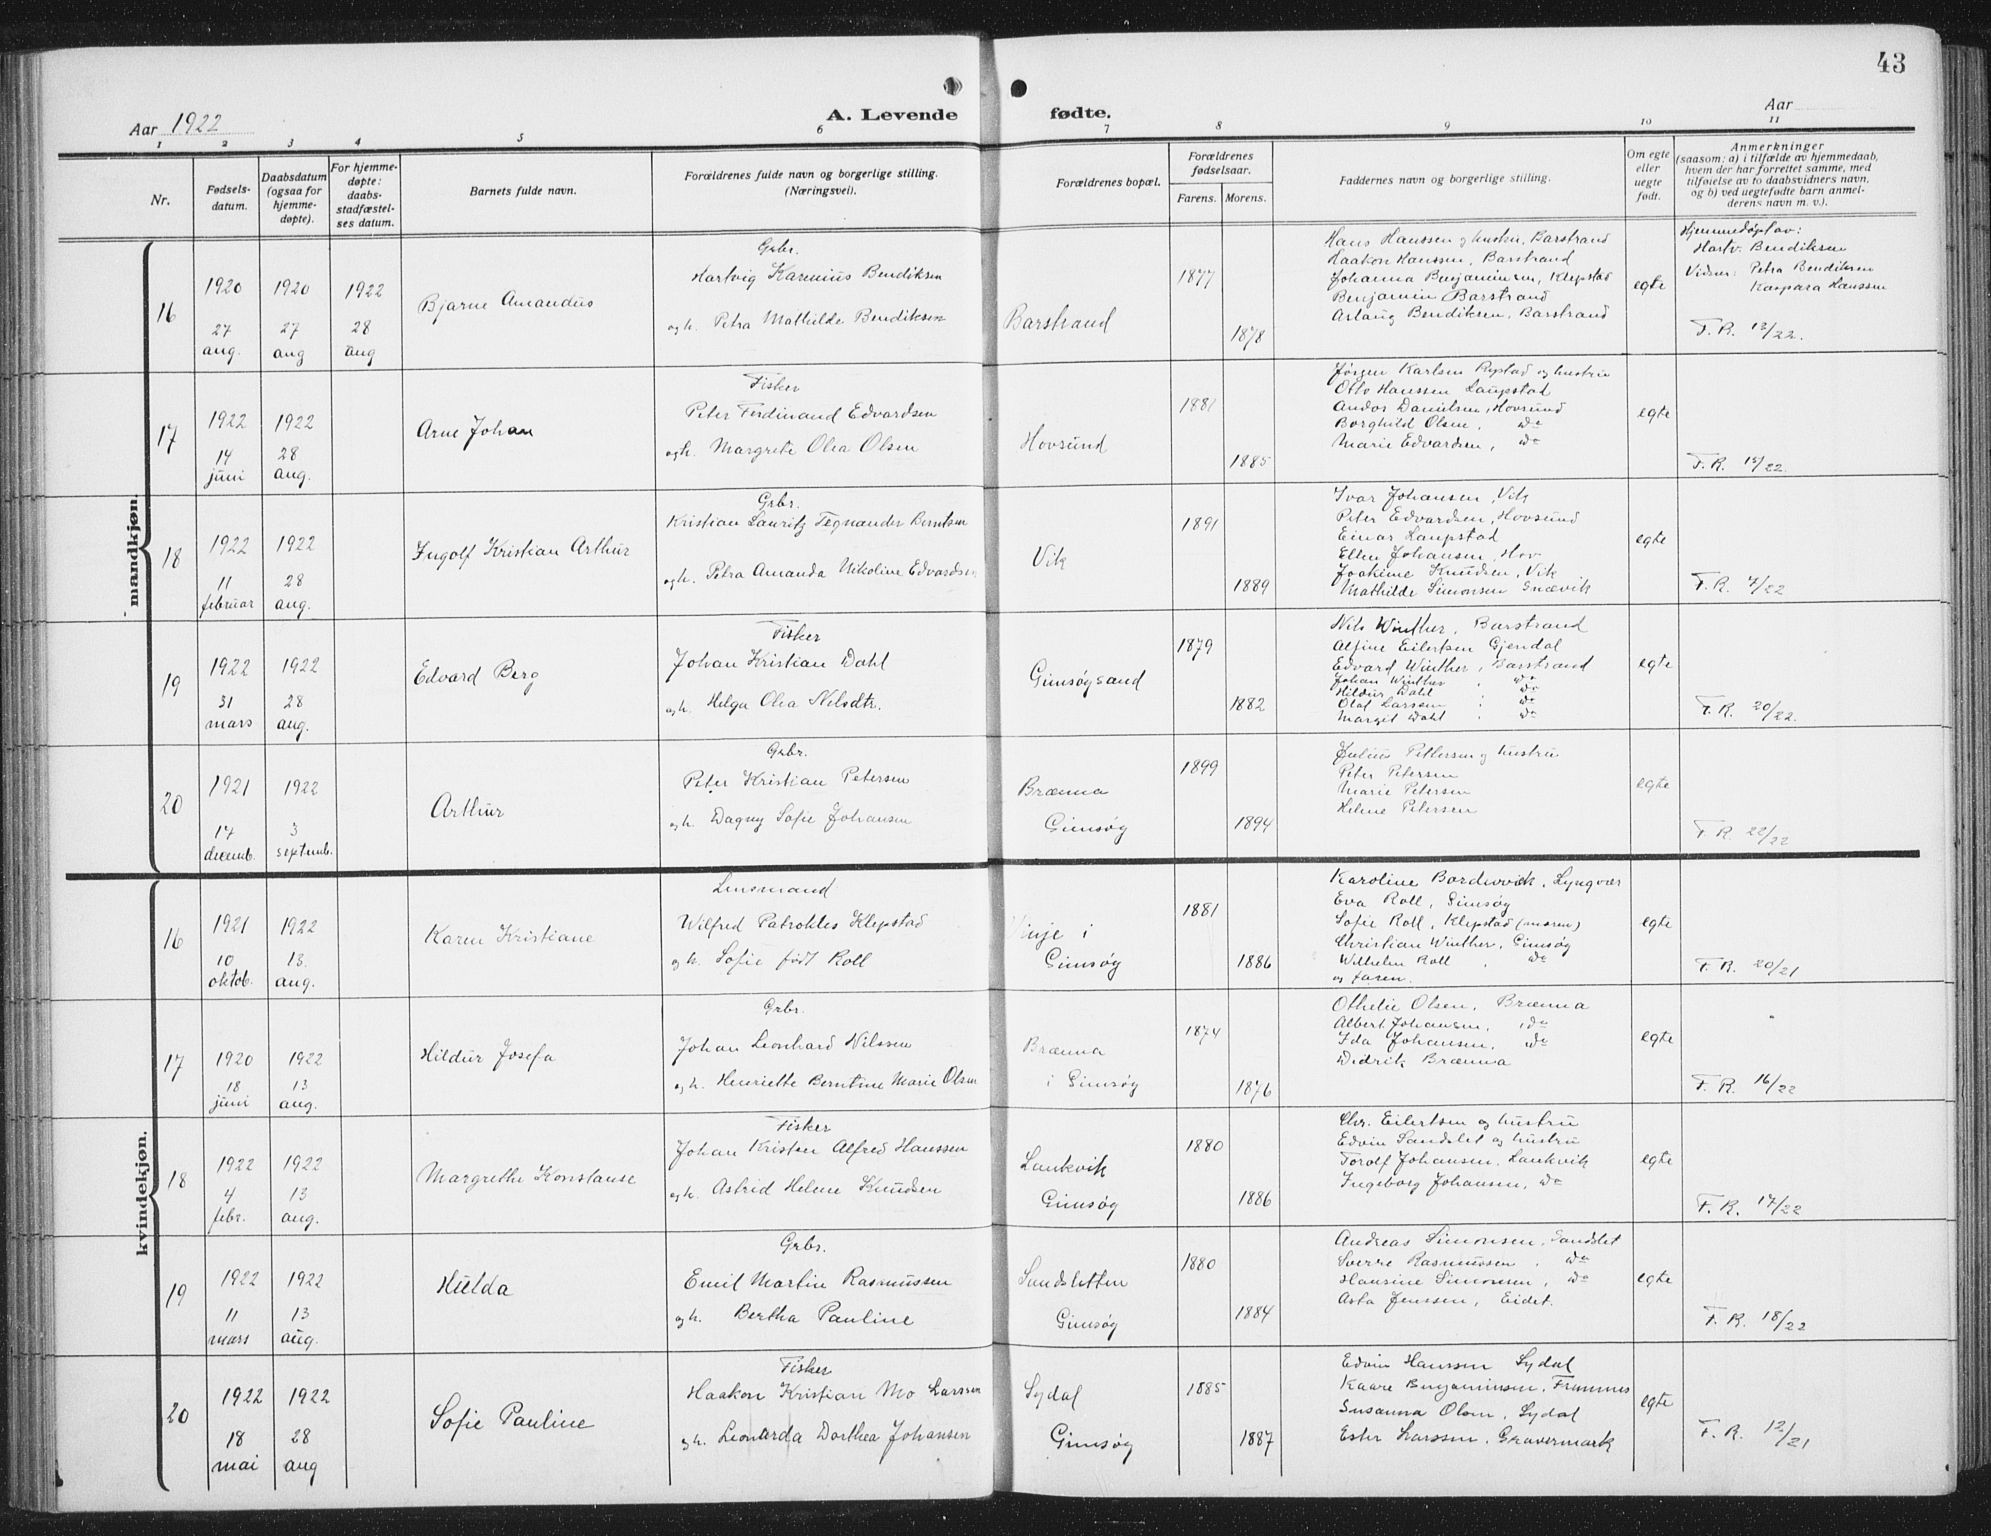 43
Aar 1922
A. Levende fødte.
Aar
1 2 3 4 5 6 7 8 9 10 11
Nr.
Fødsels-
datum.
Daabsdatum
(ogsaa for
hjemme-
døpte).
For hjemme-
døpte:
daabs-
stadfæstel-
ses datum.
Barnets fulde navn.
Forældrenes fulde navn og borgerlige stilling.
(Næringsvei).
Forældrenes bopæl.
Forældrenes
fødselsaar.
Farens. Morens.
Faddernes navn og borgerlige stilling.
Om egte
eller
uegte
født.
Anmerkninger
(saasom: a) i tilfælde av hjemmedaab,
hvem der har forrettet samme, med
tilføielse av to daabsvidners navn,
og b) ved uegtefødte barn anmel-
derens navn m. v.).
mandkjøn.
16
1920
27
aug.
1920
27
aug
1922
28
aug
Bjarne Amandus
Grbr.
Hartvig Karenius Bendiksen
og h. Petra Mathilde Bendiksen
Barstrand
1877
1878
Hans Hanssen og hustru, Barstrand
Haakon Hanssen, Barstrand
Johanna Benjaminsen, Klepstad
Benjamin Barstrand
Aslaug Bendiksen, Barstrand
egte
Hjemmedøpt av:
Hartv. Bendiksen
Vidner: Petra Bendiksen
Kaspara Hanssen
F. R. 13/22.
17
1922
14
juni
1922
28
aug.
Arne Johan
Fisker
Peter Ferdinand Edvardsen
og h. Margrete Olea Olsen
Hovsund
1881
1885
Jørgen Karlsen Rystad og hustru
Otto Hanssen Laupstad
Andos Danielsen, Hovsund
Borghild Olsen, do
Marie Edvardsen, do
egte
F. R. 15/22.
18
1922
11
februar
1922
28
aug.
Ingolf Kristian Arthur
Grbr.
Kristian Lauritz Tegnander Berntsen
og h. Petra Amanda Nikoline Edvardsen
Vik
1891
1889
Ivar Johansen, Vik
Peter Edvardsen, Hovsund
Einar Laupstad
Ellen Johansen, Hov
Joakime Knudsen, Vik
Mathilde Simonsen Gnævik
egte
F. R. 7/22
19
1922
31
mars
1922
28
aug.
Edvard Berg
Fisker
Johan Kristian Dahl
og h. Helga Olea Nilsdtr.
Gimsøysand
1879
1882
Nils Winther, Barstrand
Alfine Eilertsen Gjendal
Edvard Winther, Barstrand
Johan Winther, do
Hildur Dahl, do
Olaf Larssen, do
Margit Dahl, do
egte
F. R. 20/22.
20
1921
14
decemb.
1922
3
septemb.
Arthur
Grbr.
Peter Kristian Petersen
og h. Dagny Sofie Johansen
Brænna
Gimsøy
1899
1894
Julius Pettersen og hustru
Peter Petersen
Marie Petersen
Helene Petersen
egte
F. R. 22/22
kvindekjøn.
16
1921
10
oktob.
1922
13.
aug.
Karen Kristiane
Lensmand
Wilfred Patrokles Klepstad
og h. Sofie født Roll
Vinje i
Gimsøy
1881
1886
Karoline Bordewick, Lyngvær
Eva Roll, Gimsøy
Sofie Roll, Klepstad (moren)
Christian Winther, Gimsøy
Wilhelm Roll, do
og faren.
egte
F. R. 20/21
17
1920
18
juni
1922
13
aug.
Hildur Josefa
Grbr.
Johan Leonhard Nilssen
og h. Henriette Berntine Marie Olsen
Brænna
i Gimsøy
1874
1876
Othelie Olsen, Brænna
Albert Johansen, do
Ida Johansen, do
Didrik Brænna
egte
F. R. 16/22
18
1922
4
febr.
1922
13
aug.
Margrethe Konstanse
Fisker
Johan Kristen Alfred Hanssen
og h. Astrid Helene Knudsen
Lankvik
Gimsøy
1880
1886
Chr. Eilertsen og hustru
Edvin Sandslet og hustru
Torolf Johansen, Lankvik
Ingeborg Johansen, do
egte
F. R. 17/22
19
1922
11
mars
1922
13
aug.
Hulda
Grbr.
Emil Martin Rasmussen
og h. Bertha Pauline
Sandsletten
Gimsøy
1880
1884
Andreas Simonsen, Sandslet
Sverre Rasmussen, do
Hansine Simonsen, do
Asta Jenssen, Eidet.
egte
F. R. 18/22
20
1922
18
mai
1922
28
aug
Sofie Pauline
Fisker
Haakon Kristian Mo Larssen
og h. Leonarda Dorthea Johansen
Sydal
Gimsøy
1885
1887
Edvin Hanssen Sydal
Kaare Benjaminsen,
Susanna Olsen, Sydal
Ester Larssen, Gravermark
egte
F. R. 12/21